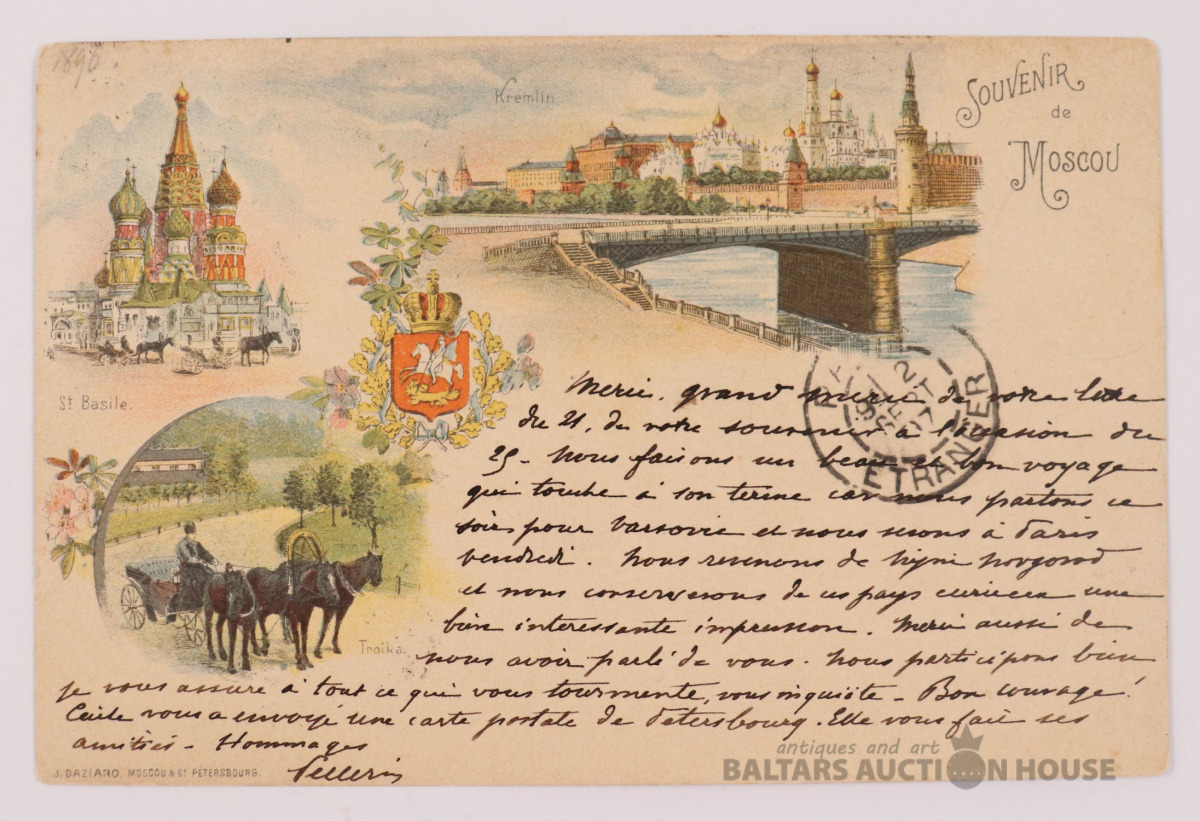 1898.
Kremlin
SOUVENIR
de
MOSCOU
St Basile.
Troika.
ETRANGER
Merci, grand merci de votre lettre
du 21, de votre souvenir à l'occasion du
25 - Nous faisons un beau et bon voyage
qui touche à son terme car nous partons ce
soir pour Varsovie et nous serons à Paris
vendredi. Nous revenons de Nijni Novgorod
et nous conserverons de ces pays curieux une
bien interessante impression. Merci aussi de
nous avoir parlé de vous. Nous participons bien
je vous assure à tout ce qui vous tourmente, vous inquiète - Bon courage!
vous a envoyé une carte postale de Petersbourg. Elle vous fait ses
amitiés - Hommages
Pellerin
J. DAZIARO, MOSCOU & ST PÉTERSBOURG.
antiques and art
BALTARS AUCTION HOUSE